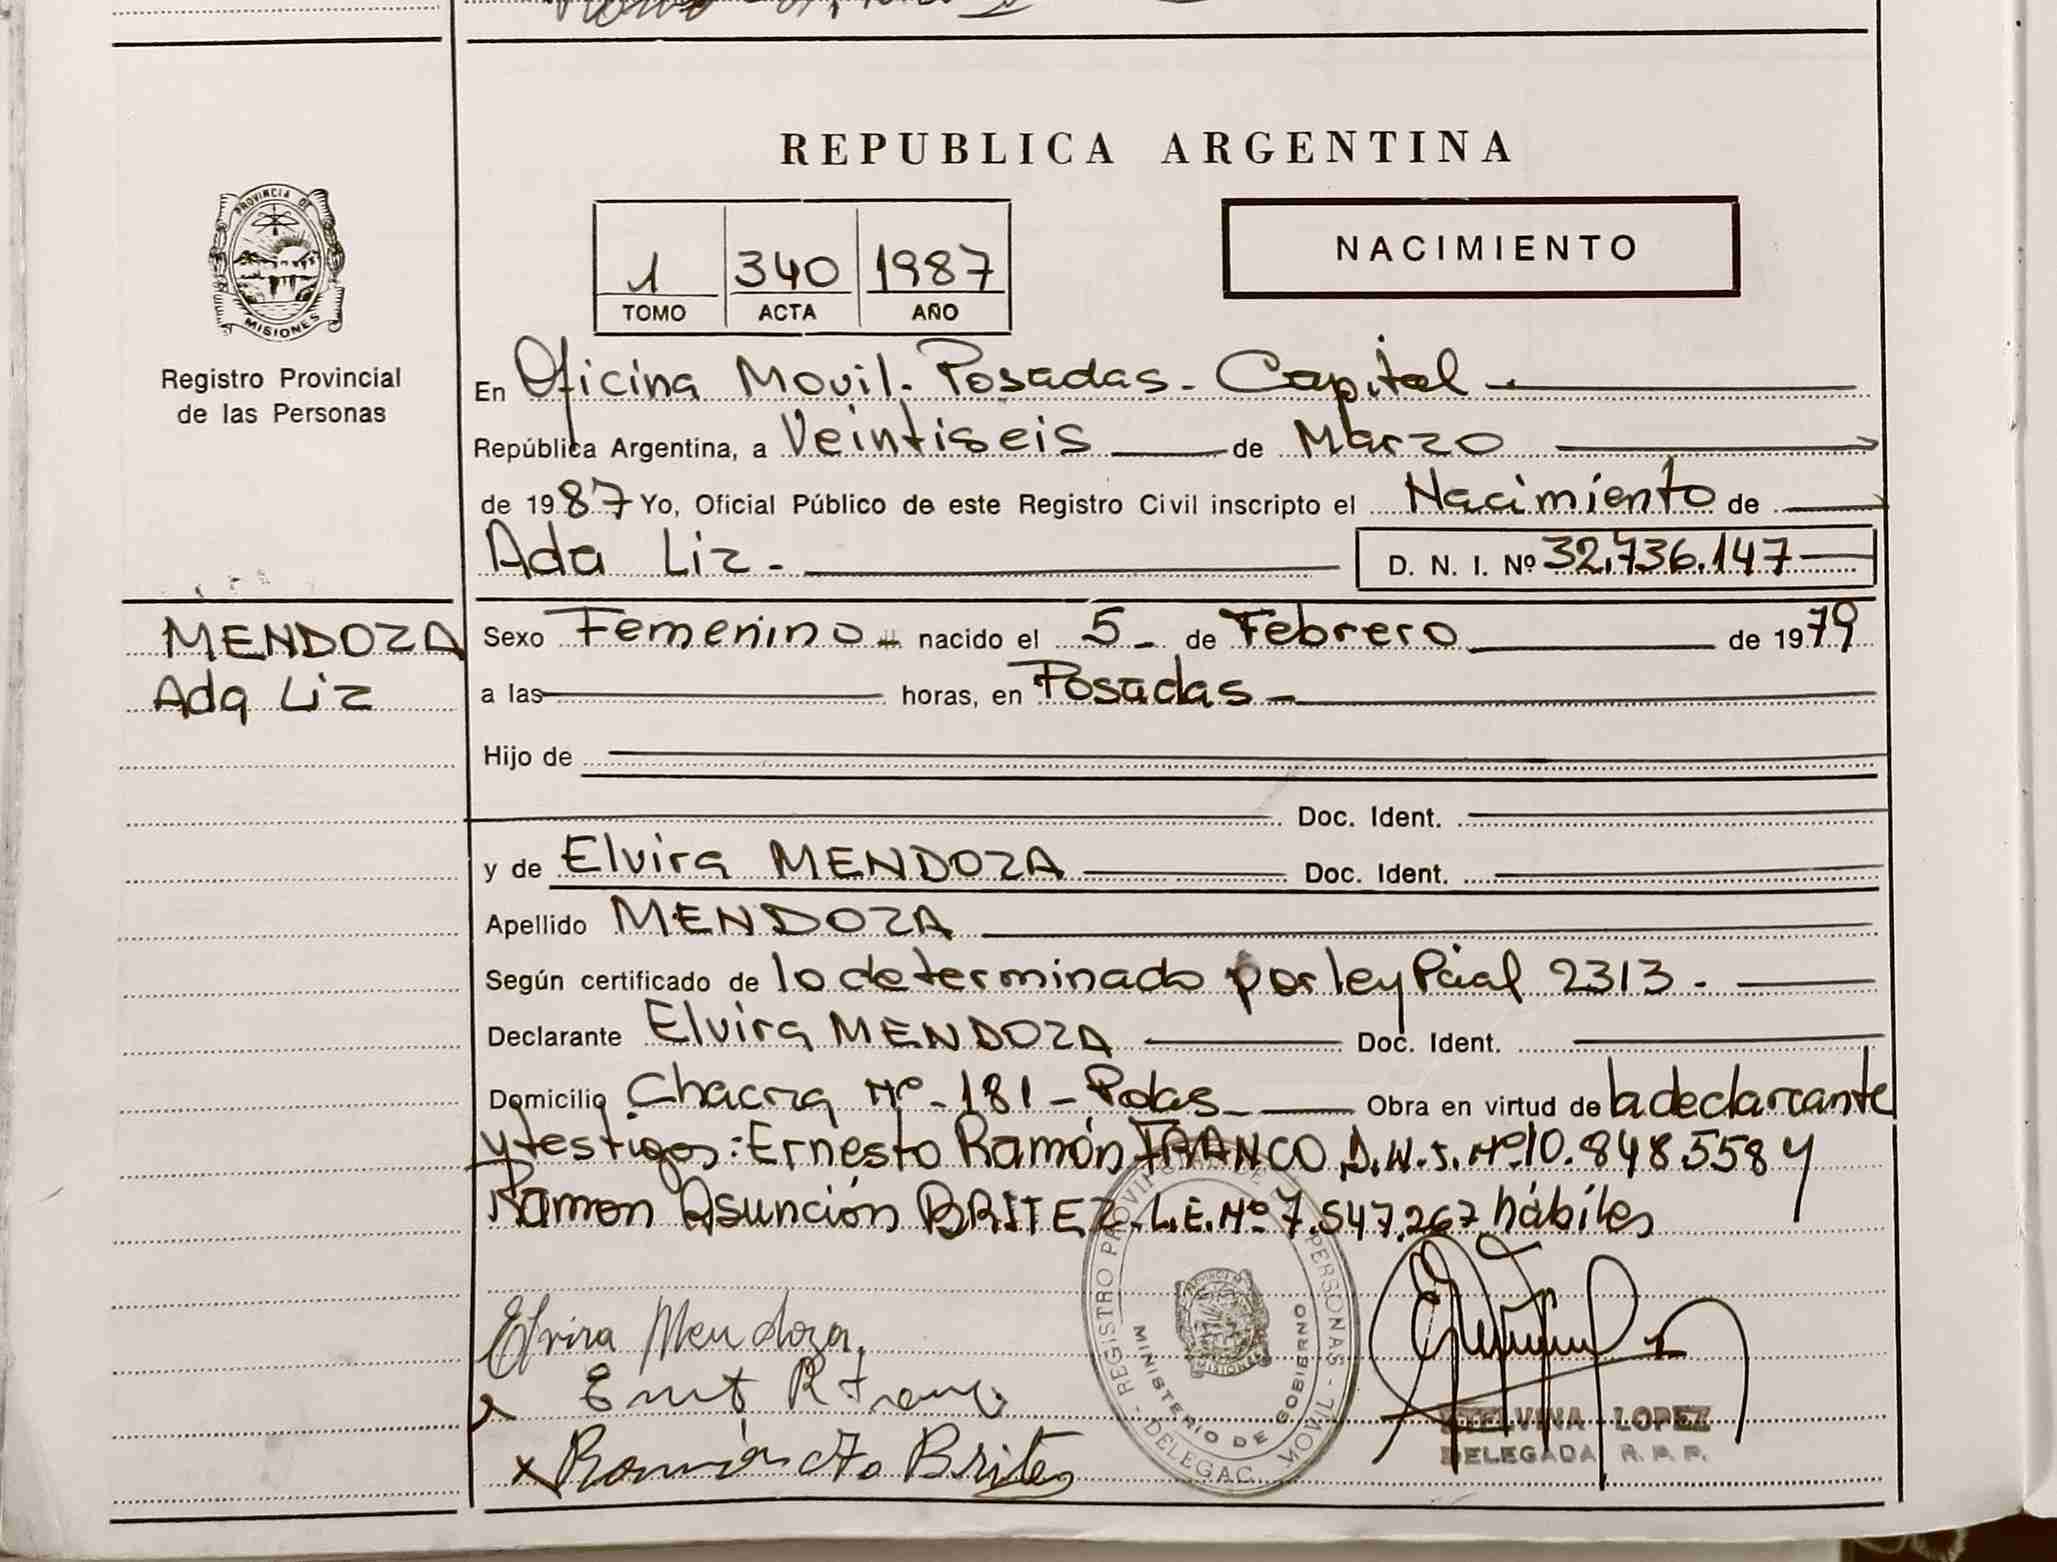 REPUBLICA ARGENTINA
PROVINCIA DE
MISIONES
Registro Provincial
de las Personas
1 340 1987
TOMO ACTA AÑO
NACIMIENTO
En Oficina Movil. Posadas - Capital
República Argentina, a Veintiseis de Marzo
de 1987 Yo, Oficial Público de este Registro Civil inscripto el Nacimiento de
Ada Liz - D. N. I. Nº 32.736.147
MENDOZA
Ada Liz
Sexo Femenino nacido el 5 - de Febrero de 1979
a las horas, en Posadas -
Hijo de
Doc. Ident.
y de Elvira MENDOZA Doc. Ident.
Apellido MENDOZA
Según certificado de lo determinado por ley Pcial 2313 -
Declarante Elvira MENDOZA Doc. Ident.
Domicilio Chacra Nº - 181 - Pdas - Obra en virtud de la declarante
y testigos: Ernesto Ramón FRANCO D.N.I. Nº 10.848.558 y
Ramon Asunción BRITEZ - L.E. Nº 7.547.267 hábiles
Elvira Mendoza
Ernst R Franco
x Ramón A Britez
REGISTRO PROVINCIAL DE LAS PERSONAS - DELEGAC. MOVIL
MINISTERIO DE GOBIERNO
MISIONES
ETELVINA LOPEZ
DELEGADA R. P. P.